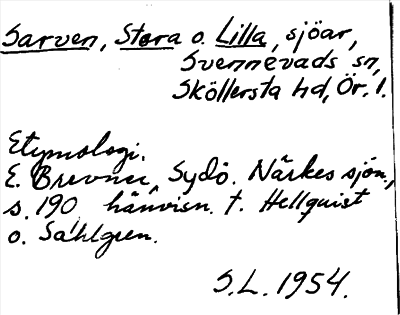 Sarven, Stora o. Lilla, sjöar,
Svennevads sn,
Sköllersta hd, Ör. l.
Etymologi.
E. Brevner, Sydö. Närkes sjön.,
s. 190 hänvisn. t. Hellquist
o. Sahlgren.
S.L. 1954.